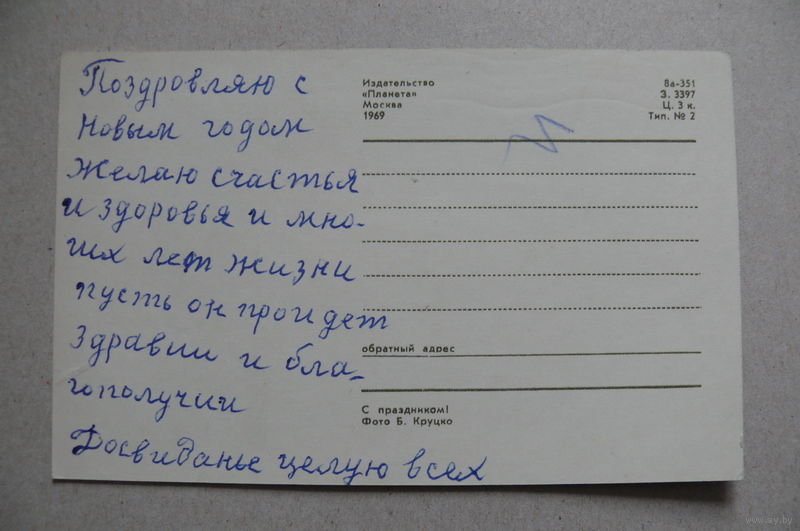 Поздровляю с
Новым годом
желаю счастья
и здоровья и мно-
гих лет жизни
пусть он проидет
здравии и бла-
гополучии
Досвиданье целую всех
Издательство
«Планета»
Москва
1969
8а-351
З. 3397
Ц. 3 к.
Тип. № 2
обратный адрес
С праздником!
Фото Б. Круцко
www.ay.by